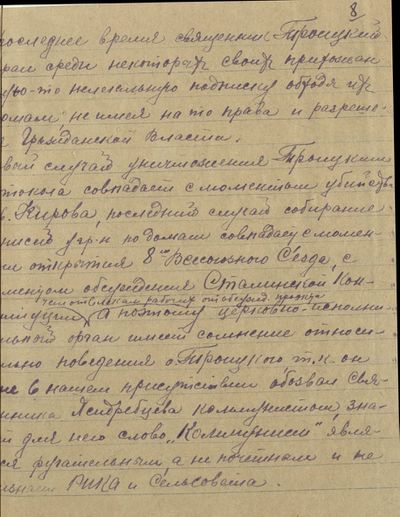 8
последнее время священник Троицкий
рал среди некоторых своих прихожан
ую-то нелегальную подписку обходя их
домам не имея на то права и разреше-
Гражданской власти.
вый случай уничтожения Троицким
токола совпадает с моментом убийства
в. Кирова, последний случай собирание
писей у гр-н по домам совпадает с момен-
открытия 8го Всесоюзного Сезда, с
ментом обсуждения Сталинской Кон-
чем отвлекал рабочих от обсужд. проекта
ституции, А поэтому церковно-исполни-
льный орган имеет сомнение относи-
льно поведения о. Троицкого т.к. он
не в нашем присутствии обозвал Свя-
нника Ястребцева коммунистом зна-
й для него слово, "Коммунист" явля-
ся ругательным а не почетным и не
РИКА и Сельсовета.